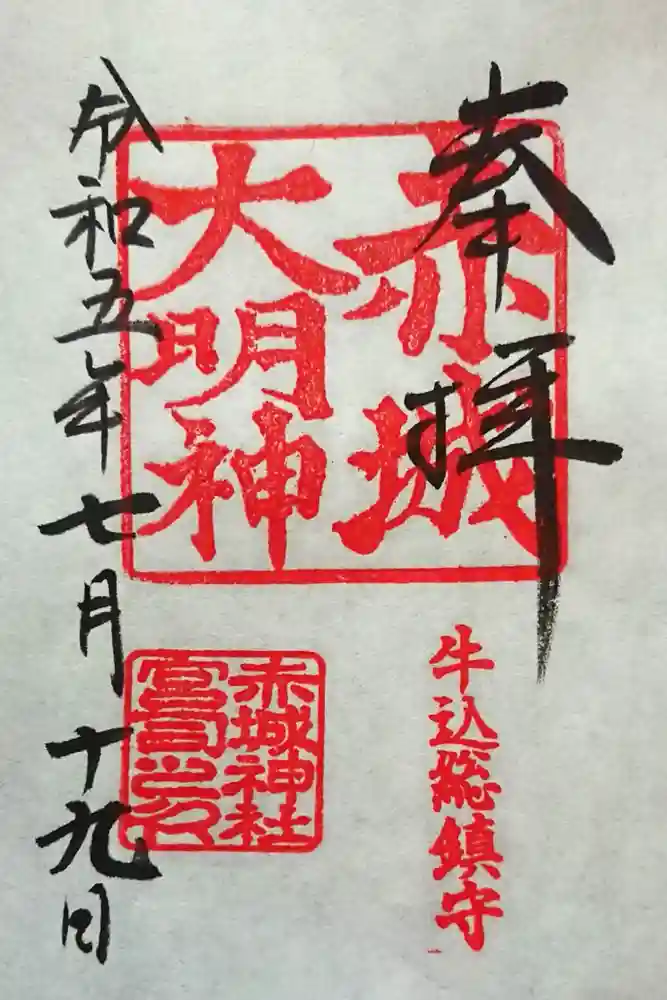 奉拝
赤城
大明神
牛込総鎮守
赤城神社
宮司之印
令和五年七月十九日